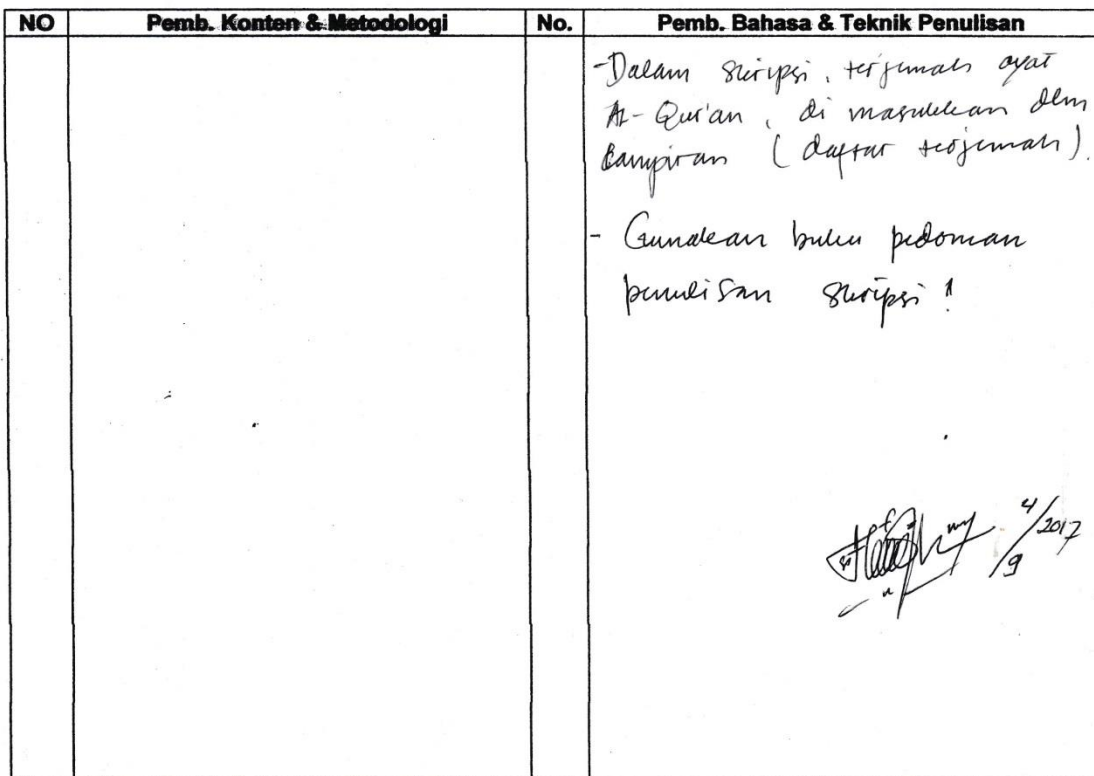 NO Pemb. Konten & Metodologi No. Pemb. Bahasa & Teknik Penulisan
- Dalam skripsi, terjemah ayat
Al-Qur'an, di masukkan dlm
Lampiran (daftar terjemah).
- Gunakan buku pedoman
penulisan skripsi !
4/9 2017